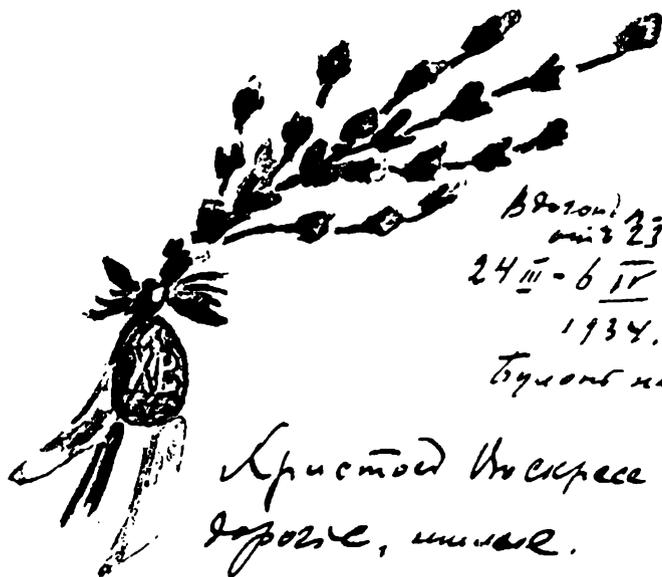 ХВ
отъ 23
24 III - 6 IV
1934.
Булонь на
Христосъ Воскресе
дорогіе, милые.